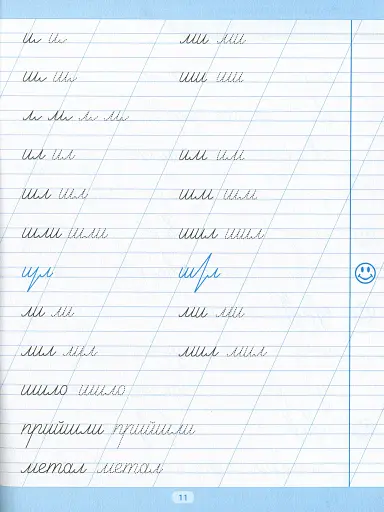 ми ми
ши ши
ил ил им им
шл шл шм шм
шли шли шил шил
ли ли ми ми
лил лил мил мил
шило шило
прийшли прийшли
метал метал
11